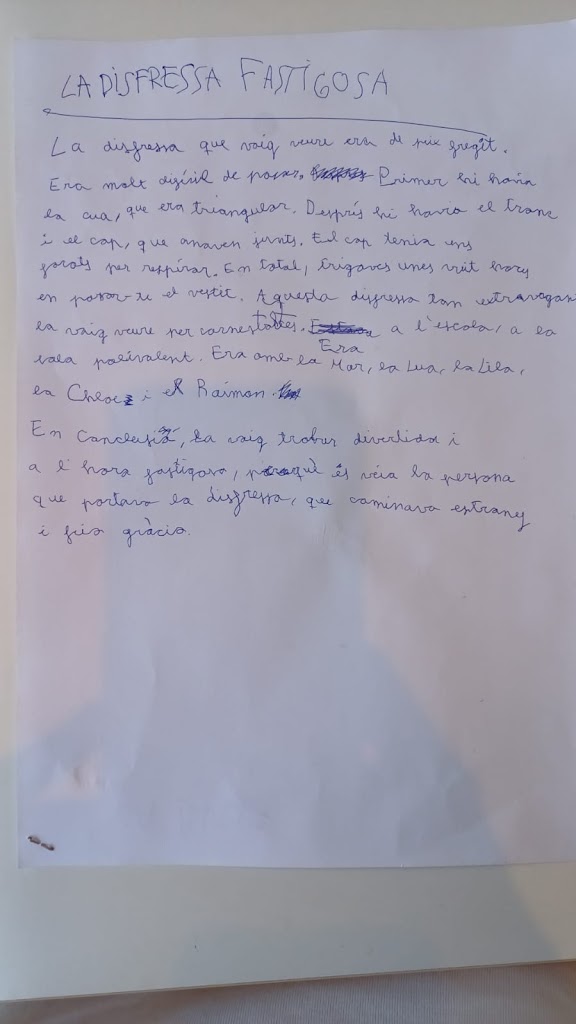 LA DISFRESSA FASTIGOSA
La disfressa que vaig veure era de peix fregit.
Era molt difícil de posar. Primer hi havia
la cua, que era triangular. Després hi havia el tronc
i el cap, que anaven junts. El cap tenia uns
forats per respirar. En total, trigaves unes vuit hores
en posar-te el vestit. Aquesta disfressa tan extravagan
la vaig veure per carnestoltes. a l'escola, a la
sala polivalent. Era amb la Mar, la Lua, la Lila,
la Chloe i el Raimon.
En Conclusió, la vaig trobar divertida i
a l'hora fastigosa, perquè és veia la persona
que portava la disfressa, que caminava estrany
i feia gràcia.